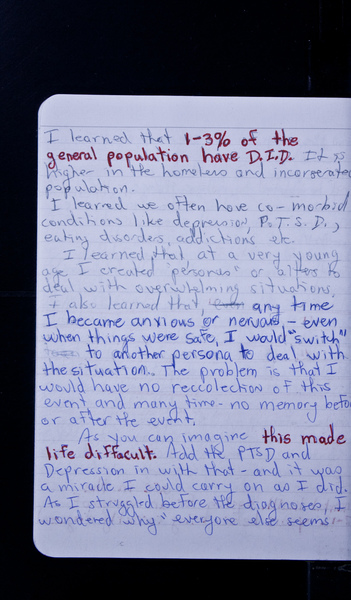 I learned that 1-3% of the
general population have D.I.D. It is
higher in the homeless and incorserated
population.
I learned we often have co-morbid
conditions like depression, P.T.S.D.,
eating disorder, addictions etc.
I learned that, at a very young
age I created "personas" or alters to
deal with overwhelming situations,
I also learned that, any time
I became anxious or nervous - even
when things were safe, I would "switch"
to another persona to deal with
the situation. The problem is that I
would have no reccolection of this
event and many time - no memory befor
or after the event.
As you can imagine this made
life diffacult. Add the PTSD and
Depression in with that - and it was
a miracle I could carry on as I did.
As I struggled before the diagnoses, I
wondered why "everyone else seems